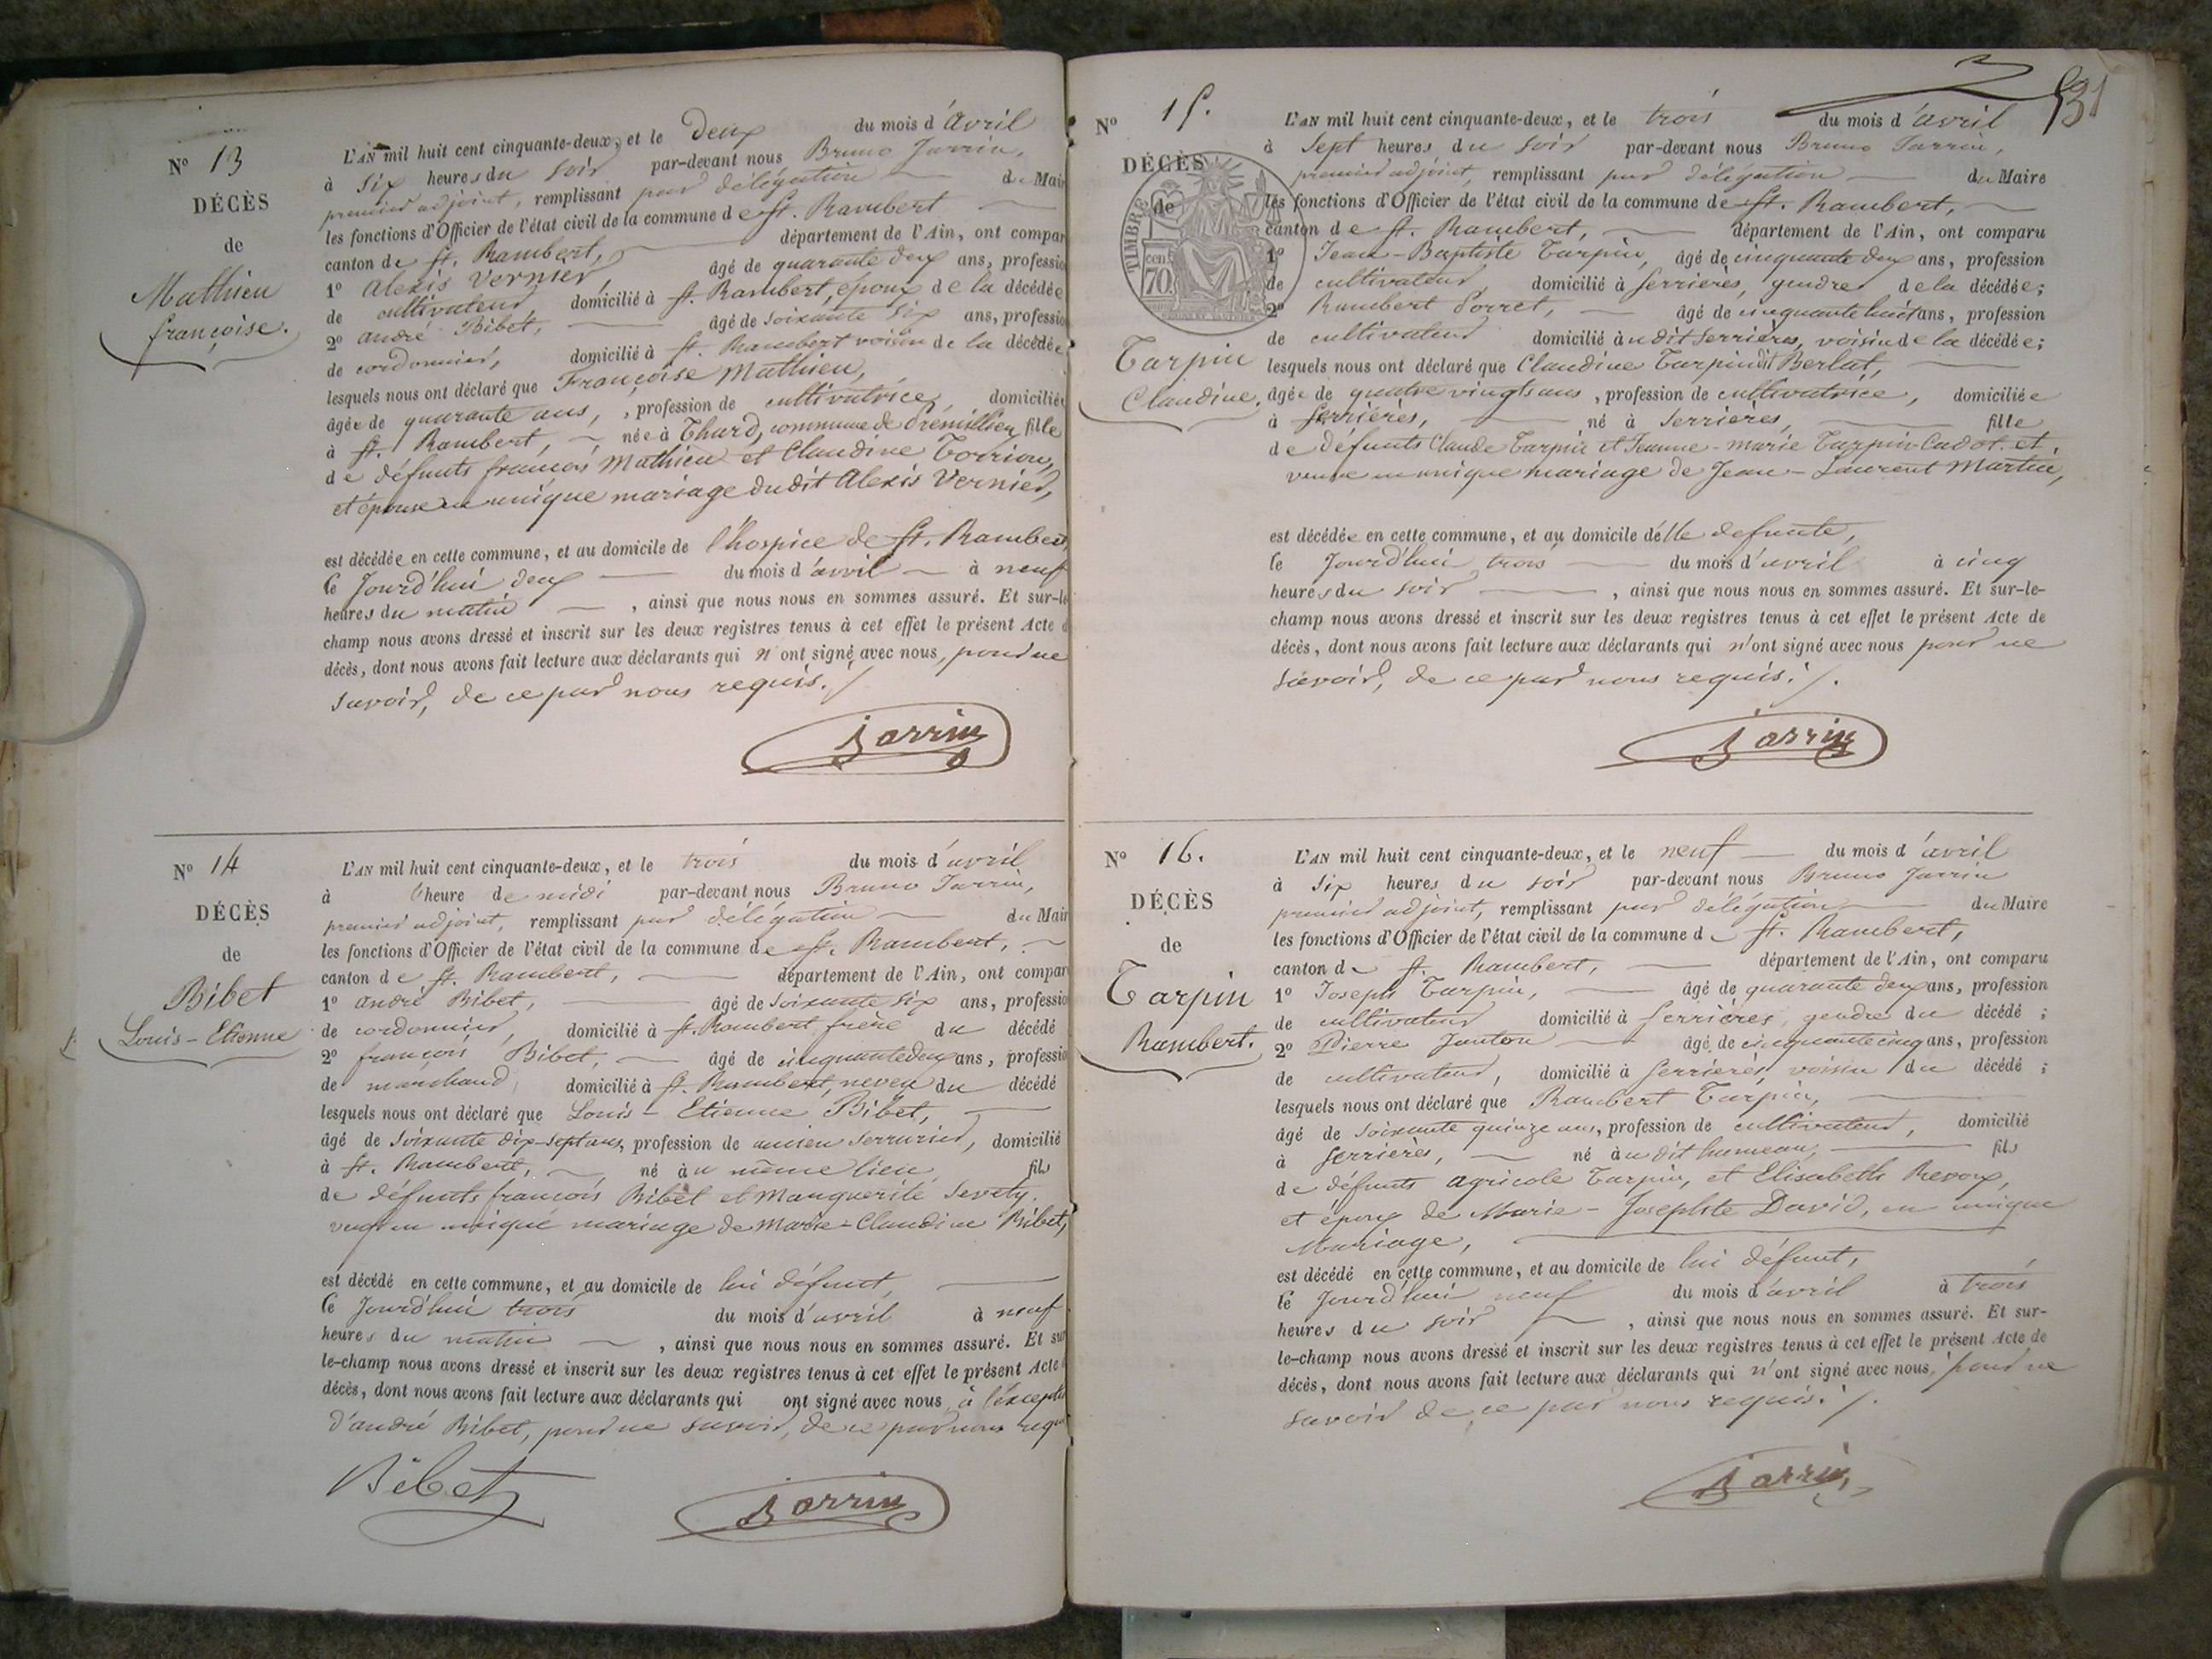 N° 13
DÉCÈS
de
Mathieu
françoise.
L'AN mil huit cent cinquante-deux, et le Deux du mois d'Avril
à Six heures du Soir par-devant nous Bruno Jarrin,
premier adjoint, remplissant par délégation du Mair
les fonctions d'Officier de l'état civil de la commune de St. Rambert
canton de St. Rambert, département de l'Ain, ont compar
1° Alexis Vernier, âgé de quarante deux ans, professio
de cultivateur domicilié à St. Rambert, époux de la décédée
2° andré Bibet, âgé de soixante six ans, professio
de cordonnier, domicilié à St. Rambert voisin de la décédée
lesquels nous ont déclaré que Françoise Mathieu,
âgée de quarante ans, , profession de cultivatrice, domiciliée
à St. Rambert, née à Thard, commune de fille
de défunts françois Mathieu et Claudine
et épouse en unique mariage dudit Alexis Vernier,
est décédée en cette commune, et au domicile de l'hospice de St. Rambert
le Jourd'hui deux du mois d'avril à neuf
heures du matin , ainsi que nous nous en sommes assuré. Et sur-le
champ nous avons dressé et inscrit sur les deux registres tenus à cet effet le présent Acte d
décès, dont nous avons fait lecture aux déclarants qui n'ont signé avec nous, pour ne
savoir, de ce par nous requis. /
Jarrin
N° 14
DÉCÈS
de
Bibet
Louis-Etienne
L'AN mil huit cent cinquante-deux, et le trois du mois d'avril
à l'heure de midi par-devant nous Bruno Jarrin,
premier adjoint, remplissant par délégation du Mair
les fonctions d'Officier de l'état civil de la commune de St. Rambert,
canton de St. Rambert, département de l'Ain, ont compar
1° andré Bibet, âgé de soixante six ans, professio
de cordonnier, domicilié à St. Rambert frère du décédé
2° françois Bibet, âgé de cinquante deux ans, professio
de marchand, domicilié à St. Rambert, neveu du décédé
lesquels nous ont déclaré que Louis-Etienne Bibet,
âgé de soixante dix-sept ans, profession de ancien serrurier, domicilié
à St. Rambert, né au même lieu, fils
de défunts françois Bibet et Marguerite
veuf en unique mariage de Marie-Claudine Bibet,
est décédé en cette commune, et au domicile de lui défunt,
le Jourd'hui trois du mois d'avril à neuf
heures du matin , ainsi que nous nous en sommes assuré. Et sur
le-champ nous avons dressé et inscrit sur les deux registres tenus à cet effet le présent Acte
décès, dont nous avons fait lecture aux déclarants qui ont signé avec nous, à l'excepti
d'andré Bibet, pour ne savoir, de ce par nous requi
Bibet
Jarrin
531
N° 15.
DÉCÈS
de
TIMBRE
70
Tarpin
Claudine.
L'AN mil huit cent cinquante-deux, et le trois du mois d'avril
à Sept heures du soir par-devant nous Bruno Jarrin,
premier adjoint, remplissant par délégation du Maire
les fonctions d'Officier de l'état civil de la commune de St. Rambert,
canton de St. Rambert, département de l'Ain, ont comparu
1° Jean-Baptiste Tarpin, âgé de cinquante deux ans, profession
de cultivateur, domicilié à Serrières, gendre de la décédée;
2° Rambert Porret, âgé de cinquante huit ans, profession
de cultivateur domicilié audit Serrières, voisin de la décédée;
lesquels nous ont déclaré que Claudine Tarpin dit Berlat,
âgée de quatre vingts ans, profession de cultivatrice, domiciliée
à Serrières, né à Serrières, fille
de défunts Claude Tarpin et Jeanne-Marie Tarpin-Cadot et
veuve en unique mariage de Jean-Laurent Martin,
est décédée en cette commune, et au domicile d'elle defunte,
le Jourd'hui trois du mois d'avril à cinq
heures du soir , ainsi que nous nous en sommes assuré. Et sur-le-
champ nous avons dressé et inscrit sur les deux registres tenus à cet effet le présent Acte de
décès, dont nous avons fait lecture aux déclarants qui n'ont signé avec nous pour ne
savoir, de ce par nous requis. /.
Jarrin
N° 16.
DÉCÈS
de
Tarpin
Rambert.
L'AN mil huit cent cinquante-deux, et le neuf du mois d'avril
à Six heures du soir par-devant nous Bruno Jarrin
premier adjoint, remplissant par délégation du Maire
les fonctions d'Officier de l'état civil de la commune de St. Rambert,
canton de St. Rambert, département de l'Ain, ont comparu
1° Joseph Tarpin, âgé de quarante deux ans, profession
de cultivateur domicilié à Serrières, gendre du décédé ;
2° Pierre Janton âgé de cinquante cinq ans, profession
de cultivateur, domicilié à Serrières, voisin du décédé ;
lesquels nous ont déclaré que Rambert Tarpin,
âgé de soixante quinze ans, profession de cultivateur, domicilié
à Serrières, né au dit hameau, fils
de défunts agricole Tarpin, et Elisabeth Revoux,
et époux de Marie-Josephte David, en unique
Mariage,
est décédé en cette commune, et au domicile de lui défunt,
le Jourd'hui neuf du mois d'avril à trois
heures du soir , ainsi que nous nous en sommes assuré. Et sur-
le-champ nous avons dressé et inscrit sur les deux registres tenus à cet effet le présent Acte de
décès, dont nous avons fait lecture aux déclarants qui n'ont signé avec nous, pour ne
savoir de ce par nous requis. /.
Jarrin